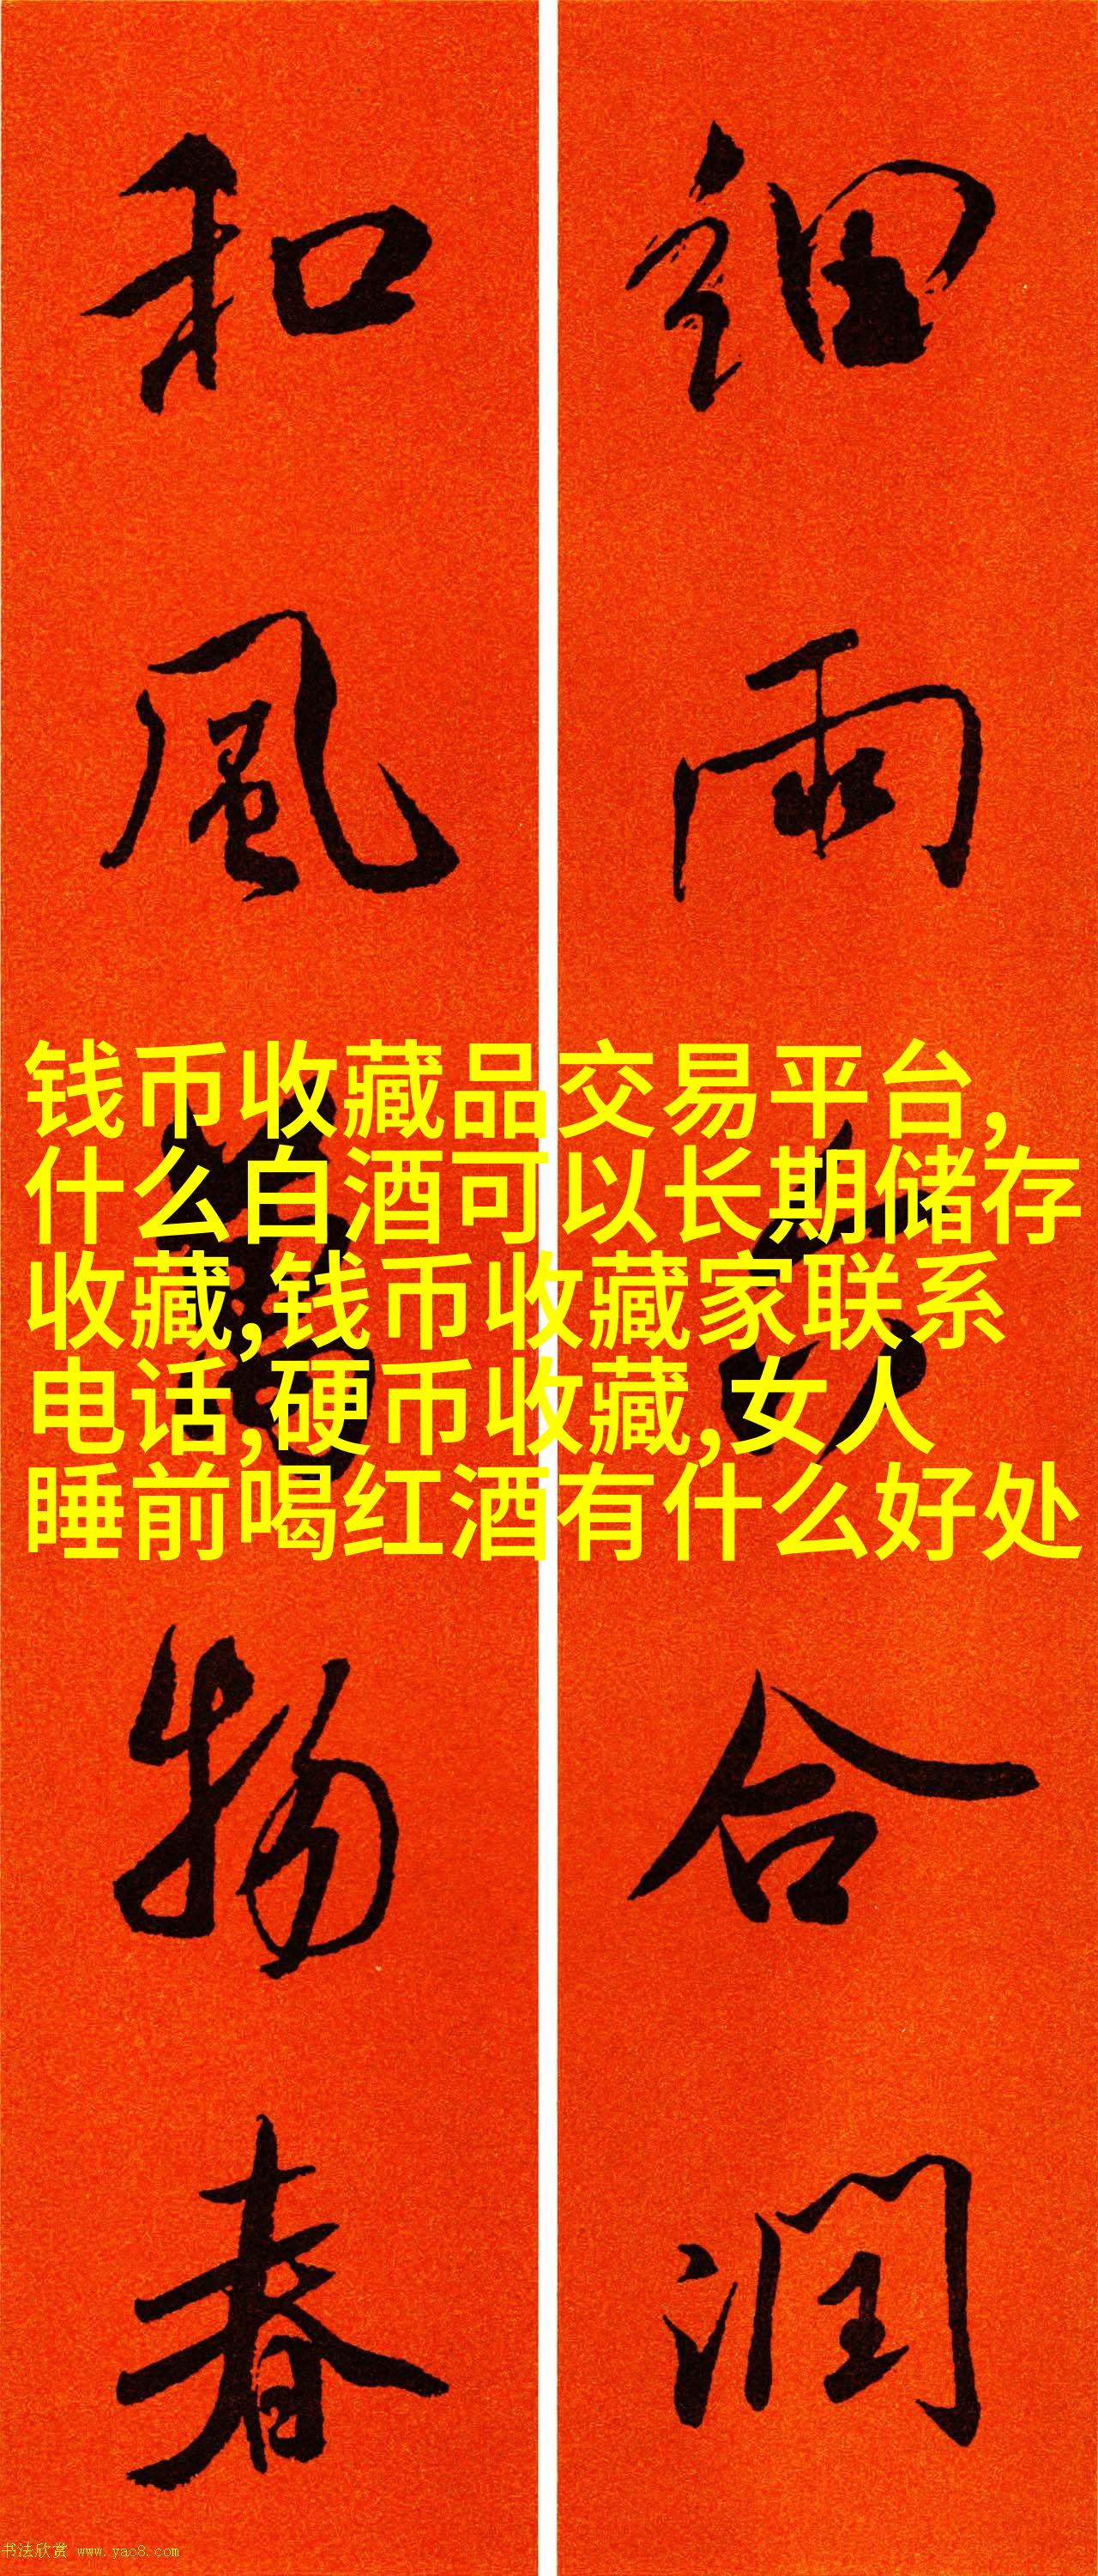 細雨六合潤
和風萬物春
钱币收藏品交易平台,
什么白酒可以长期储存
收藏,钱币收藏家联系
电话,硬币收藏,女人
睡前喝红酒有什么好处
书法欣赏 www.yac8.com